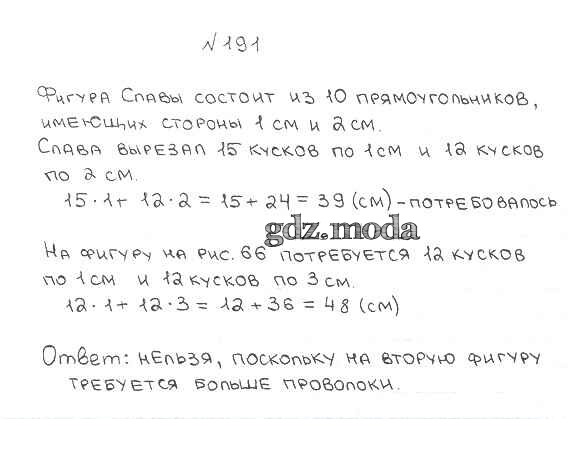 №191
Фигура Славы состоит из 10 прямоугольников,
имеющих стороны 1 см и 2 см.
Слава вырезал 15 кусков по 1 см и 12 кусков
по 2 см.
15·1+ 12·2 = 15+ 24 = 39 (см) - потребовалось
gdz.moda
На фигуру на рис. 66 потребуется 12 кусков
по 1 см и 12 кусков по 3 см.
12·1+ 12·3 = 12+36 = 48 (см)
Ответ: нельзя, поскольку на вторую фигуру
требуется больше проволоки.